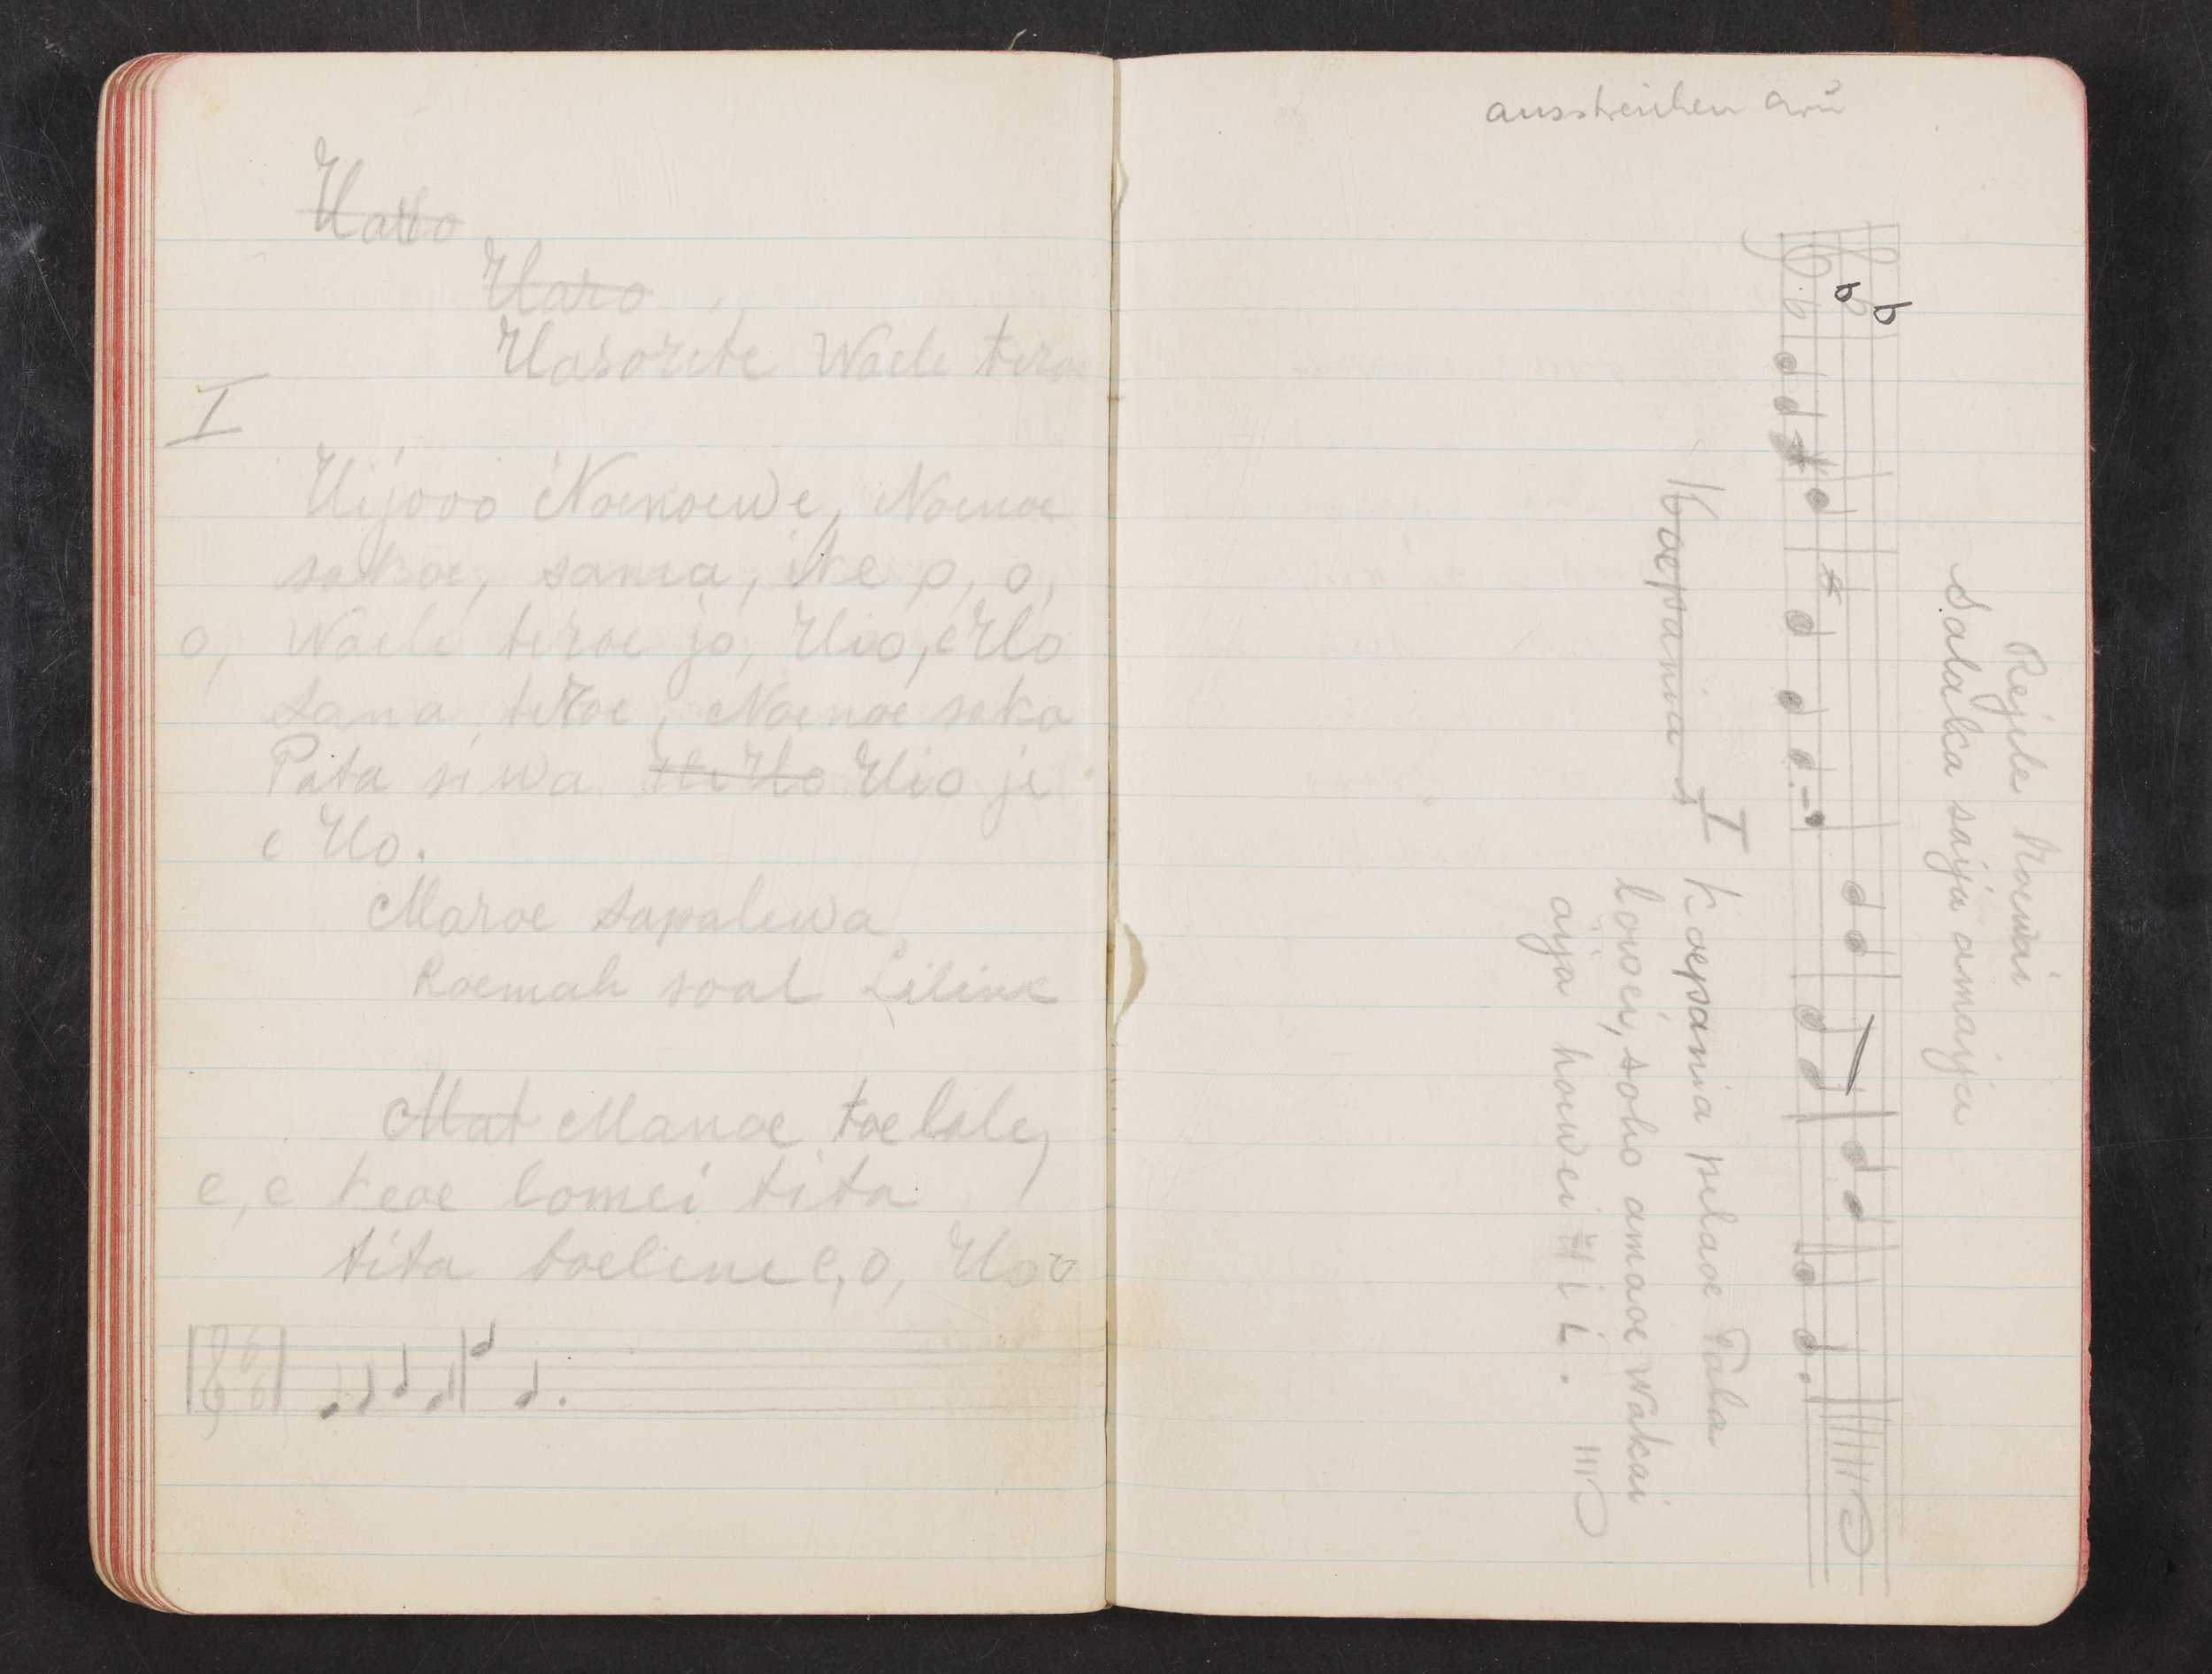 Uaro
Uaro
Uasorete Waele teroe
I
Uijooo Noenoewe, Noenoe
sokoe, sanea, ike o, o,
o, Waele teroe jo, Uio, e Uo
Sana teroe, Noenoe soko
Pata siwa Uio je
e Uo.
Moroe sapalewa
Roemah soal Liline
Mat Manoe toelale,
e, e keoe lomei tita
tita toelene e, o, Uoo
ausstreichen
Rejele Noewai
Salaka saija amaija
Koepania I
Koepania pelaoe Tala
lowoei, soho amaoe wakai
aija hoewei U i i.